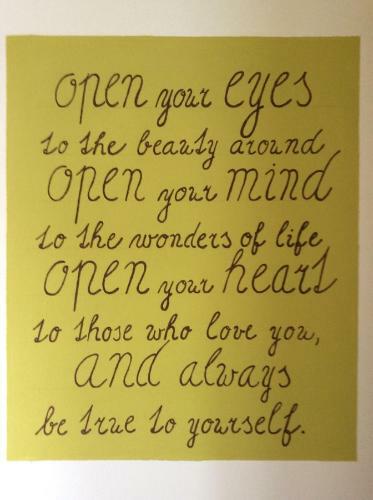 open your eyes
to the beauty around
open your mind
to the wonders of life
open your heart
to those who love you,
and always
be true to yourself.